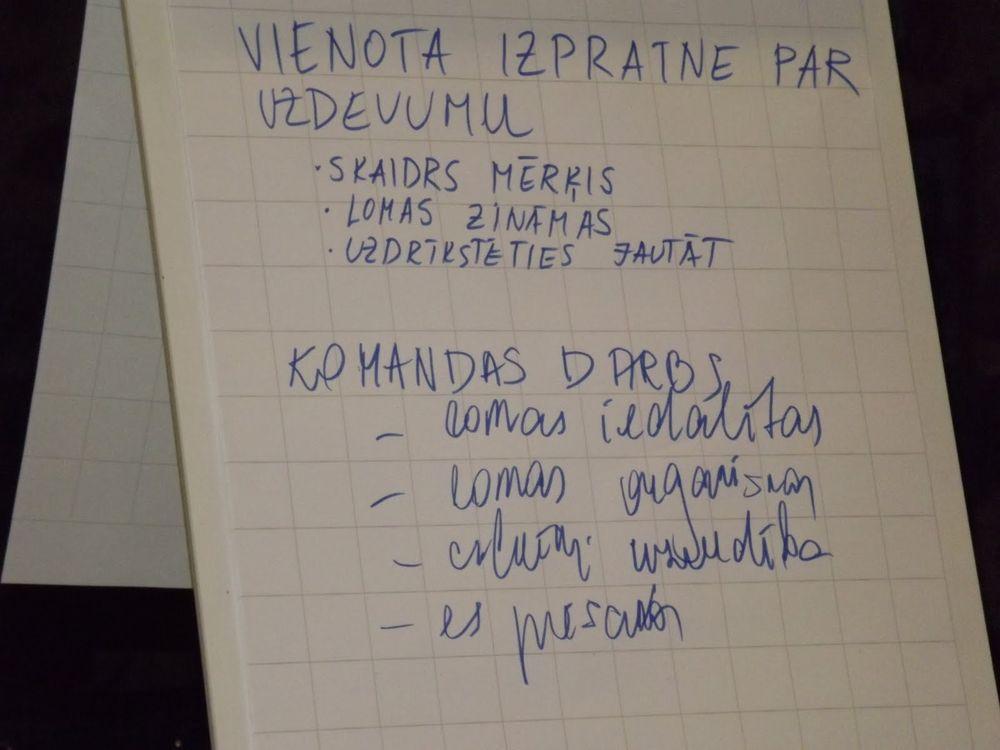 VIENOTA IZPRATNE PAR
UZDEVUMU
· SKAIDRS MĒRĶIS
· LOMAS ZINĀMAS
· UZDRĪKSTĒTIES JAUTĀT
KOMANDAS DARBS
– lomas iedalītas
– lomas
–
– es